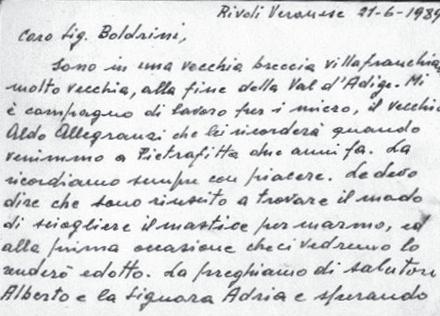 Rivoli Veronese 21-6-1989
Caro Sig. Boldrini,
Sono in una vecchia breccia villafranchia
molto vecchia, alla fine della Val d'Adige. Mi
è compagno di lavoro per i micro, il vecchio
Aldo Allegranzi che lei ricorderà quando
venimmo a Pietrafitta due anni fa. La
ricordiamo sempre con piacere. Le devo
dire che sono riuscito a trovare il modo
di sciogliere il mastice per marmo, ed
alla prima occasione che ci vedremo lo
renderò edotto. La preghiamo di salutare
Alberto e la Signora Adria e sperando